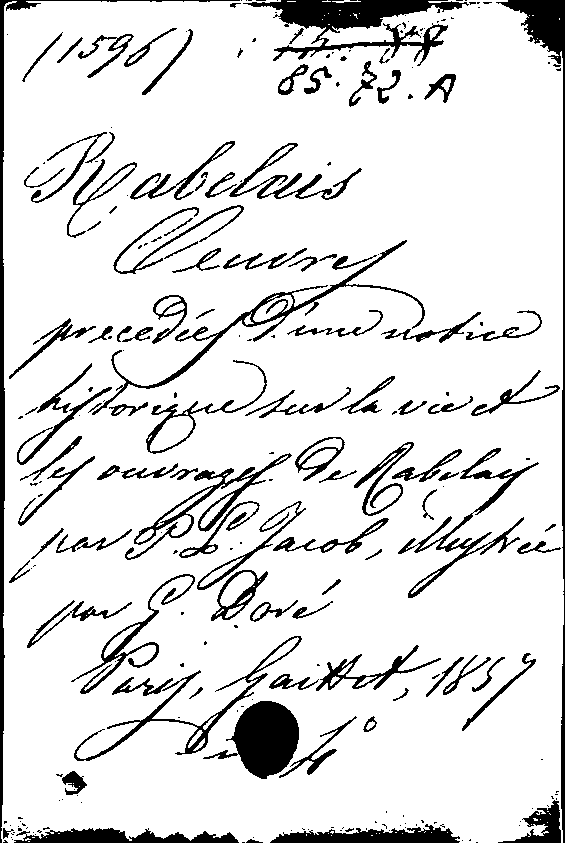 (1596)
85.72.A
Rabelais
Oeuvres
precedées d'une notice
historique sur la vie et
les ouvrages de Rabelais
par P. L. Jacob, illustrée
par G. Doré
Paris, Gaittet, 1857
in 4°